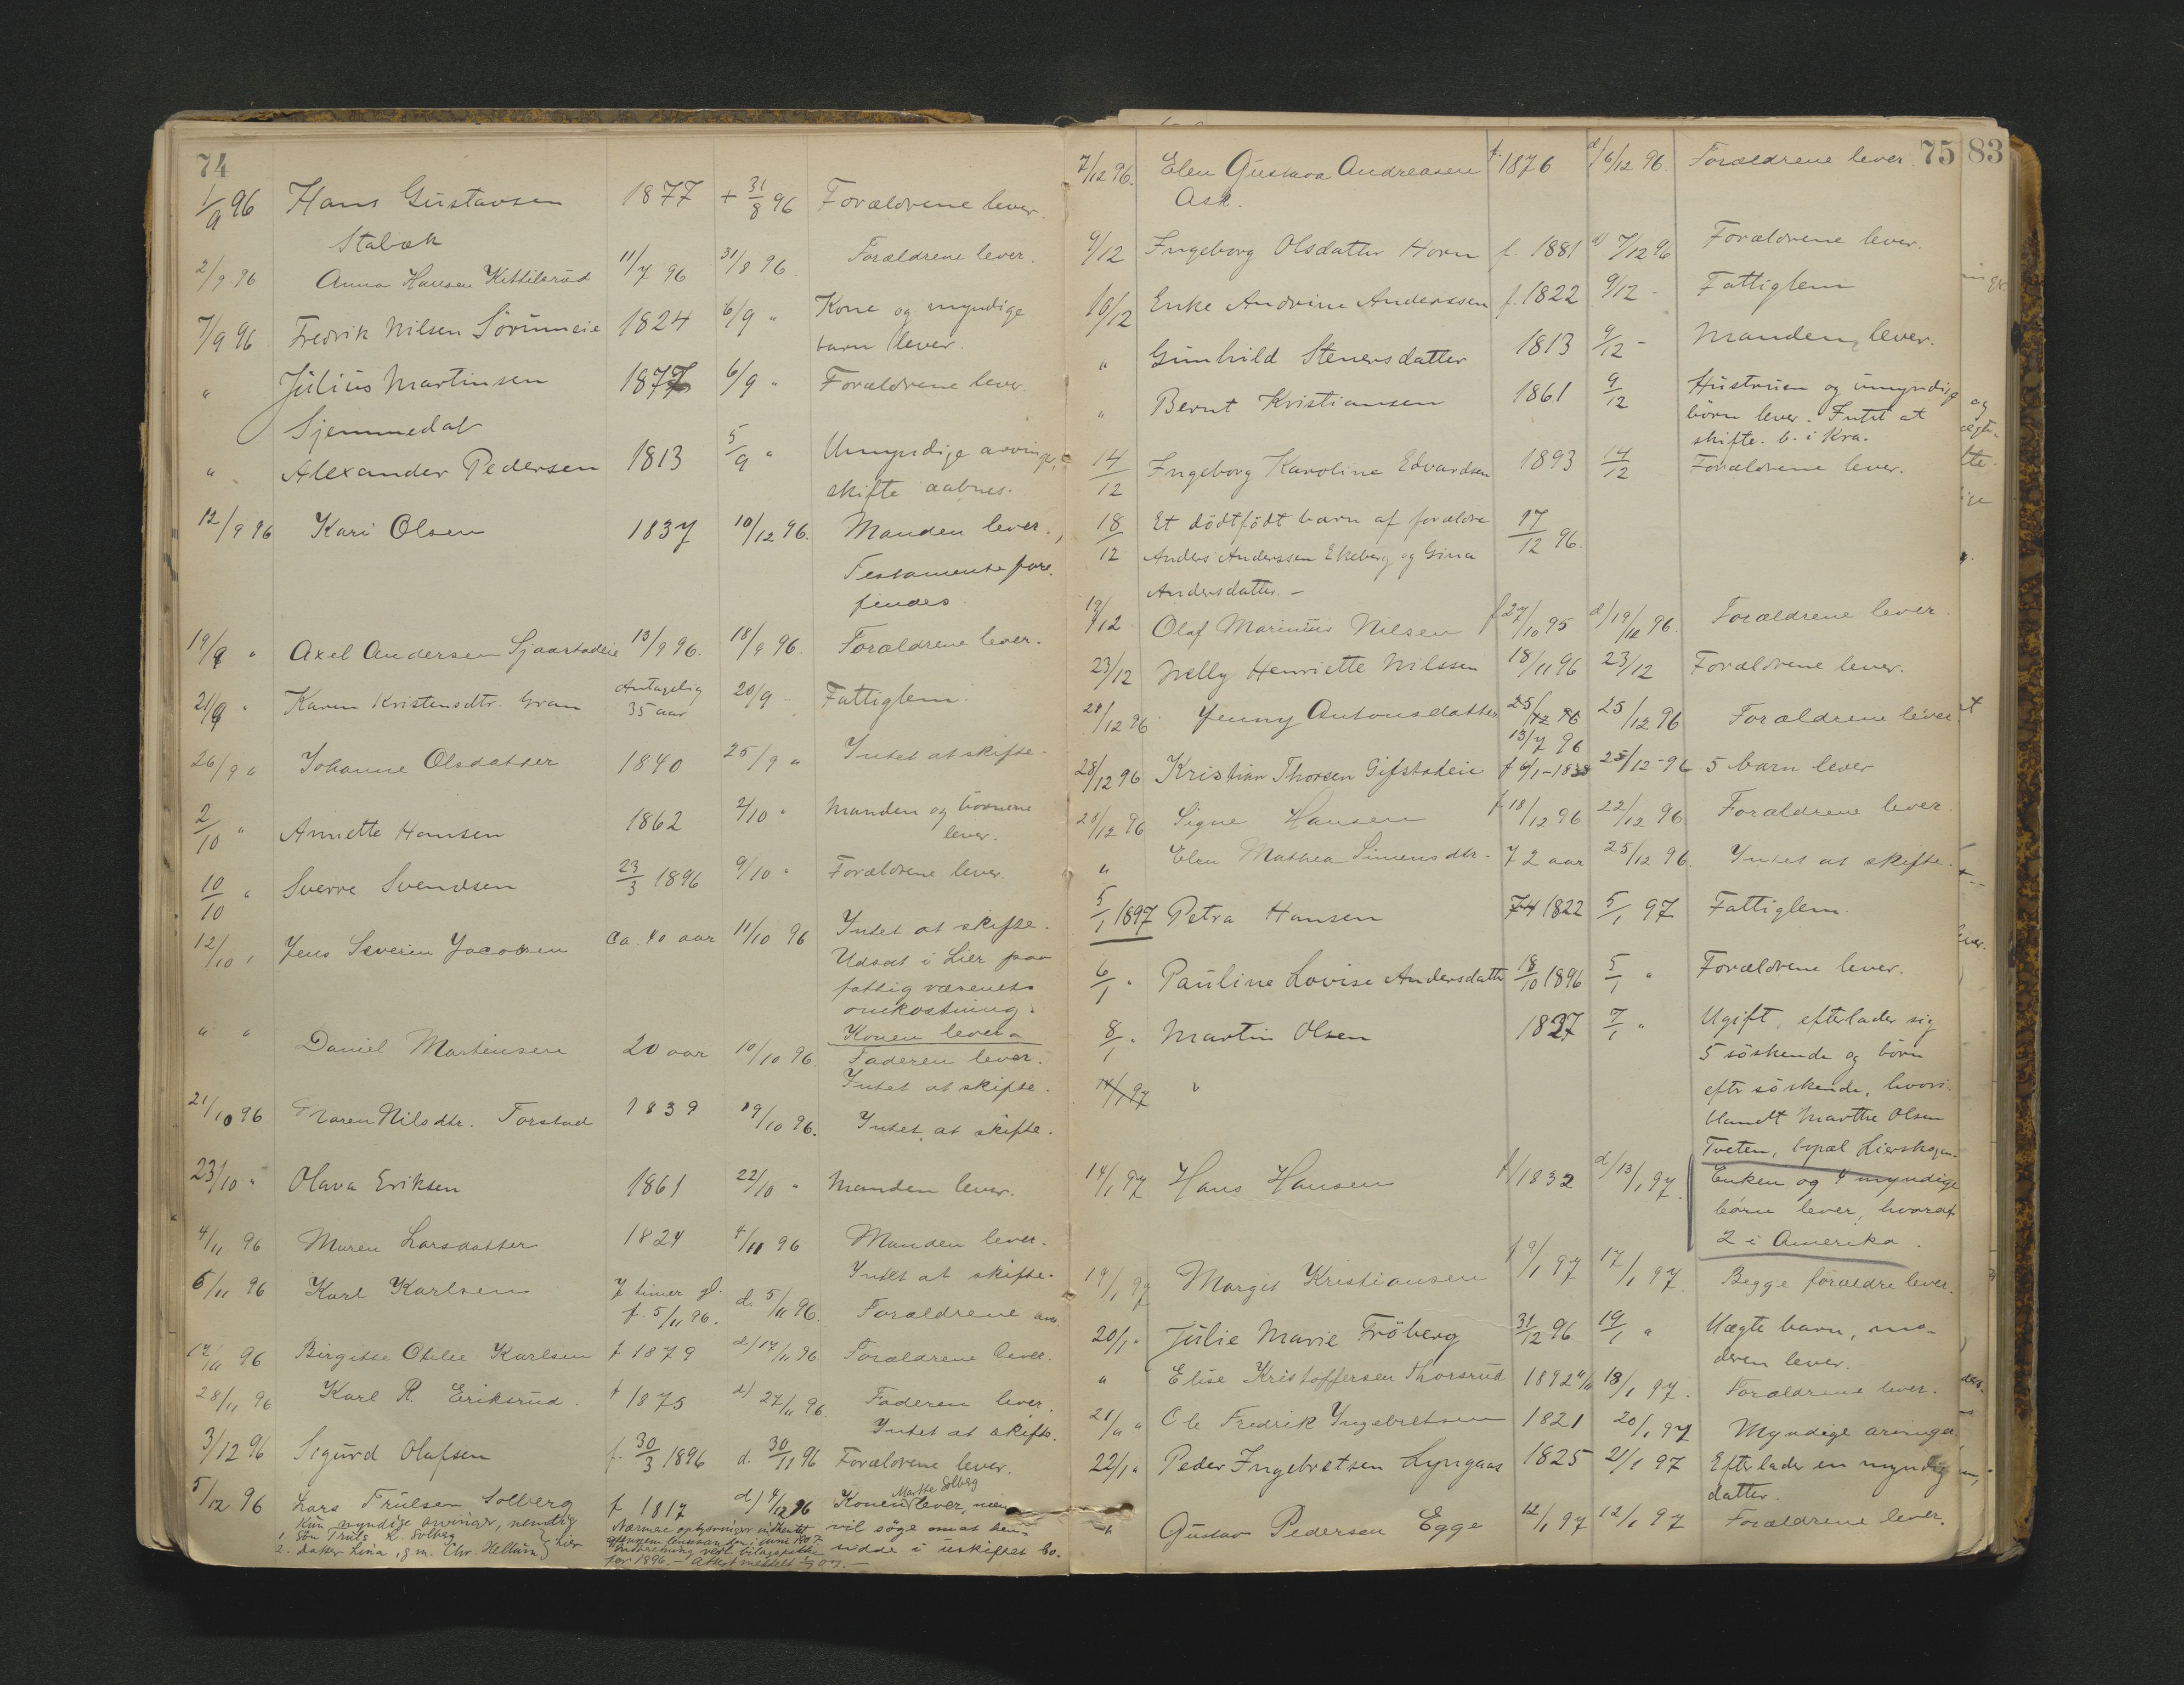 74
1/9 96 Hans Gustavsen 1877 + 31/8 96 Forældrene lever.
Stabæk
2/9 96 Anna Hansen Kittilsrud 11/7 96 31/8 96 Forældrene lever.
7/9 96 Fredrik Nilsen 1824 6/9 " Kone og myndige
barn lever.
" Julius Martinsen 1877 6/9 " Forældrene lever.
Sjemmedal
" Alexander Pedersen 1813 5/9 " Umyndige arvinger,
skifte aabnes.
12/9 96 Kari Olsen 1837 10/12 96. Manden lever.
Testamente fore-
findes
19/9 " Axel Andersen 13/9 96. 18/9 96. Forældrene lever.
21/9 " Karen Kristensdtr. Gran Antagelig 35 aar 20/9 Fattiglem.
26/9 " Johanne Olsdatter 1840 25/9 " Intet at skifte.
2/10 " Annette Hansen 1862 2/10 " Manden og börnene
lever.
10/10 " Sverre Svendsen 23/3 1896 9/10 " Forældrene lever.
12/10 " Jens Severin Jacobsen Ca. 40 aar 11/10 96 Intet at skifte.
Udsat i Lier paa
fattigvæsenets
omkostning.
Konen lever
" " Daniel Martinsen 20 aar 10/10 96. Faderen lever.
Intet at skifte.
21/10 96 Maren Nilsdtr. Torstad 1839 19/10 96. Intet at skifte.
23/10 " Olava Eriksen 1861 22/10 " Manden lever.
4/11 96 Maren Larsdatter 1824 4/11 96 Manden lever.
Intet at skifte.
6/11 96 Karl Karlsen 7 timer gl.
f. 5/11 96. d. 5/11 96. Forældrene
17/11 96 Birgitte Otilie Karlsen f 1879 d/ 17/11 96 Forældrene lever.
28/11 96 Karl R. Eriksrud. f 1875 d/ 27/11 96 Faderen lever.
Intet at skifte.
3/12 96 Sigurd Olafsen f. 30/3 1896 d. 30/11 96 Forældrene lever.
Marthe Solberg
5/12 96 Lars Trulsen Solberg f 1817 d/ 4/12 96 Konen lever, men
Kun myndige arvinger, nemlig
1. Sön Truls L. Solberg
2. datter Lina, g. m. Chr. Hellum } Lier
Nærmere oplysninger indhentet
vil söge om at hen-
sidde i uskiftet bo.
for 1896. – Attest meddelt
75 83
7/12 96. Elen Gustava Andreasen f. 1876 d/ 6/12 96. Forældrene lever
Ask.
9/12 Ingeborg Olsdatter Horn f. 1881 d/ 7/12 96 Forældrene lever.
10/12 Enke Andrine Anderssen f. 1822 9/12 - Fattiglem
" Gunhild Stenersdatter 1813 9/12 - Manden lever.
" Bernt Kristiansen 1861 9/12 Hustruen og umyndige
börn lever. Intet at
skifte. b. i Kra.
14/12 Ingeborg Karoline Edvardsen 1893 14/12 Forældrene lever.
18/12 Et dödfödt barn af forældre 17/12 96.
Anders Anderssen Ekeberg og Gina
Andersdatter. –
19/12 Olaf Marinius Nilsen f 27/10 95 d/ 19/12 96. Forældrene lever.
23/12 Nelly Henriette Nilssen 18/11 96 23/12 Forældrene lever.
28/12 96 Jenny Antonsdatter 25/12 96 25/12 96 Forældrene lever.
13/7 96
28/12 96 Kristian Thorsen Gifstadeie f 6/1 - 1838 25/12 - 96 5 barn lever
28/12 96 Signe Hansen f. 18/12 96 22/12 96 Forældrene lever.
" Elen Mathea Simensdtr. 72 aar 25/12 96. Intet at skifte.
5/1 1897 Petra Hansen 74 1822 5/1 97 Fattiglem.
6/1 " Pauline Lovise Andersdatter 18/10 1896 5/1 " Forældrene lever.
8/1 " Martin Olsen 1827 7/1 " Ugift, efterlader sig
5 söskende og börn
14/1 97 " efter söskende, hvori-
blandt Marthe Olsen
Tveten, bopæl Lierskogen.
14/1 97 Hans Hansen f/ 1832 d/ 13/1 97. Enken og 4 myndige
börn lever, hvoraf
2 i Amerika.
19/1 97 Margit Kristiansen f 9/1 97 17/1 97. Begge forældre lever.
20/1 " Julie Marie Fröberg 31/12 96 19/1 " Uægte barn, mo-
deren lever.
" Elise Kristoffersen Thorsrud 1892 18/1 97. Forældrene lever.
21/1 " Ole Fredrik Ingebretsen 1821 20/1 97 Myndige arvinger
22/1 " Peder Ingebretsen Lyngaas 1825 21/1 97 Efterlader en myndig
datter.
" Gustav Pedersen Egge 12/1 97 12/1 97 Forældrene lever.